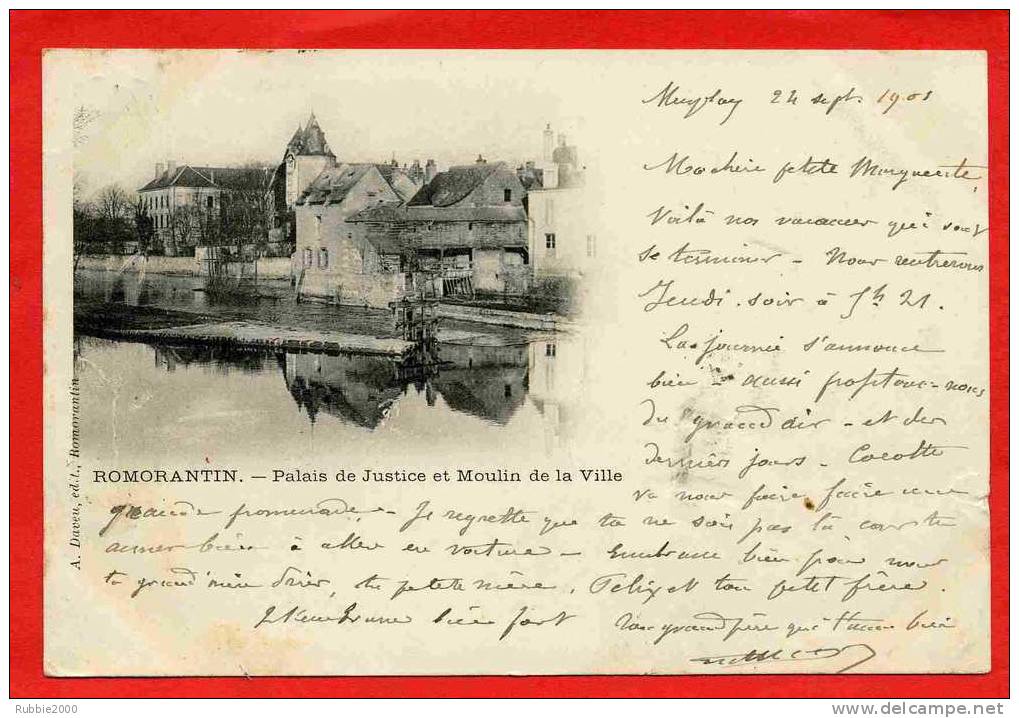 24 sept. 1901
Ma chère petite Marguerite,
Voilà nos vacances qui vont
se terminer - Nous rentrerons
Jeudi soir à 5h 21.
La journée s'annonce
bien - aussi profitons-nous
du grand air - et des
derniers jours - Cocotte
va nous faire faire une
A. Daveu, ed.t., Romorantin
ROMORANTIN. — Palais de Justice et Moulin de la Ville
grande promenade, - Je regrette que tu ne sois pas là car tu
aimes bien à aller en voiture - Embrasse bien pour nous
ta grand'mère ta petite mère, Félix et ton petit frère.
bien fort Ton grand père qui t'aime bien
Rubbie2000
http://www.delcampe.net